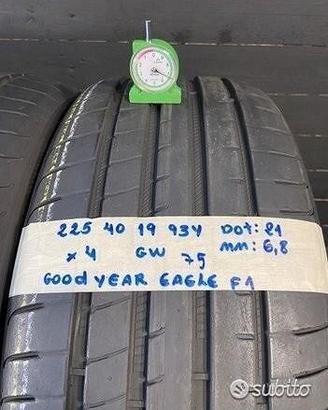 225 40 19 93Y DOT: 21
x 4 GW 75 mm: 6,8
GOOD YEAR EAGLE F1
subito